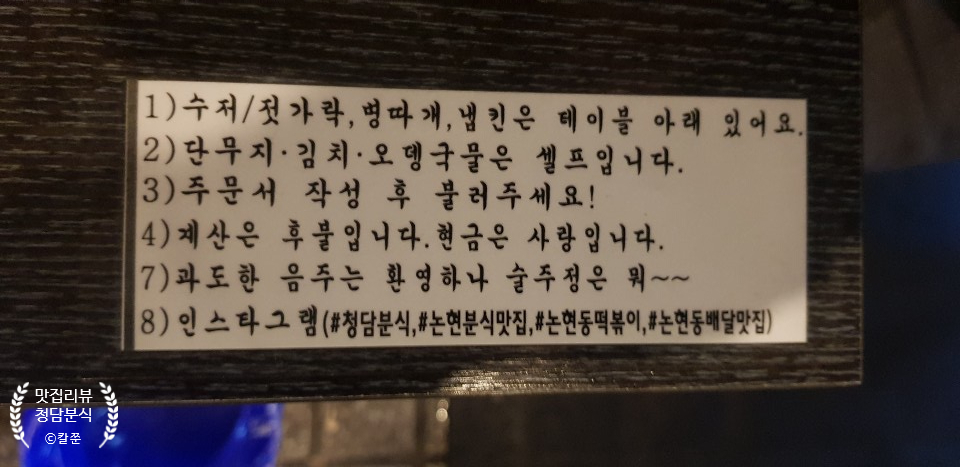 1)수저/젓가락,병따개,냅킨은 테이블 아래 있어요.
2)단무지·김치·오뎅국물은 셀프입니다.
3)주문서 작성 후 불러주세요!
4)계산은 후불입니다.현금은 사랑입니다.
7)과도한 음주는 환영하나 술주정은 뭐~~
8)인스타그램(#청담분식,#논현분식맛집,#논현동떡볶이,#논현동배달맛집)
맛집리뷰
청담분식
©칼쭌